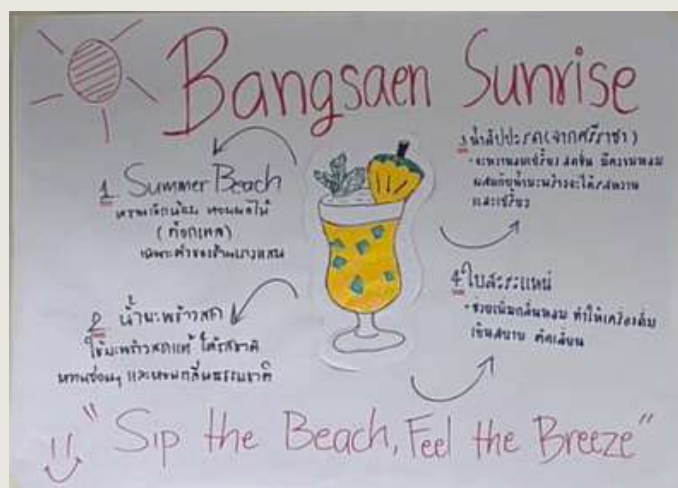 Bangsaen Sunrise
1. Summer Beach
หวานเล็กน้อย หอมผลไม้
(ค็อกเทล)
2 น้ำมะพร้าวสด
ใช้มะพร้าวสดแท้ ได้รสชาติ
หวานอ่อนๆ และหอมกลิ่นธรรมชาติ
3 น้ำสัปปะรด(จากศรีราชา)
รสหวานอมเปรี้ยว สดชื่น มีความหอม
ผสมกับน้ำมะพร้าวจะได้รสหวาน
และเปรี้ยว
4 ใบสะระแหน่
• ช่วยเพิ่มกลิ่นหอม ทำให้เครื่องดื่ม
เย็นสบาย
"Sip the Beach, Feel the Breeze"